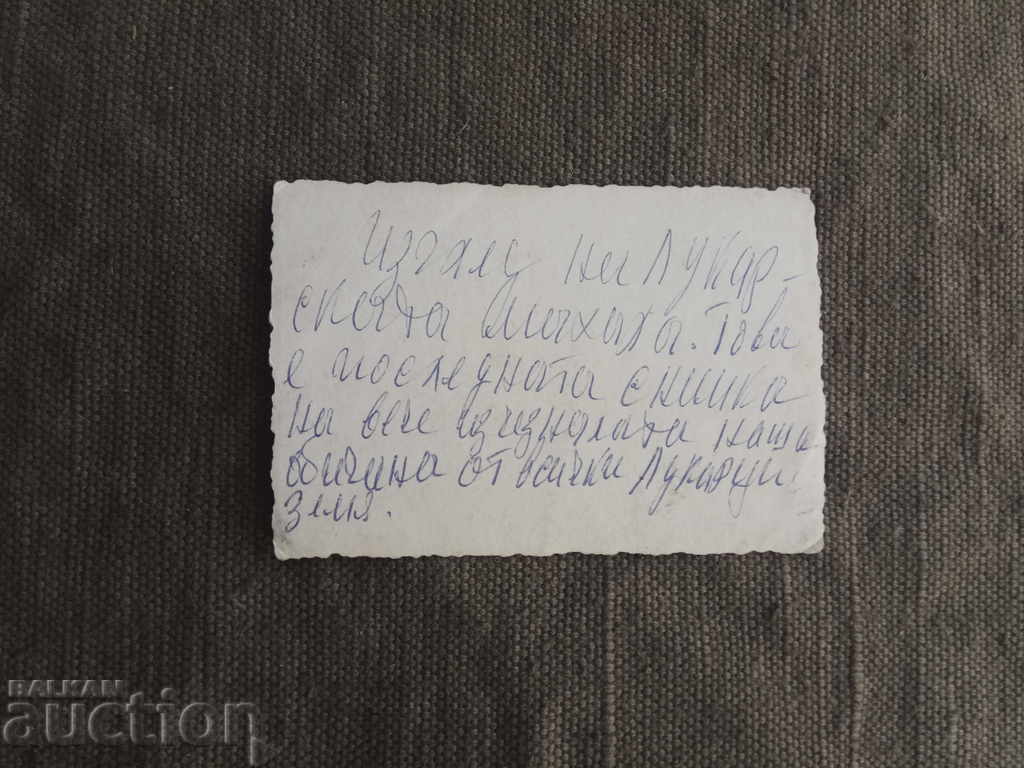 Изглед на Лукар-
ската махала. Това
е последната снимка
на вече изчезналата наша
обична от всички Лукарци
земя.
BALKAN
auction